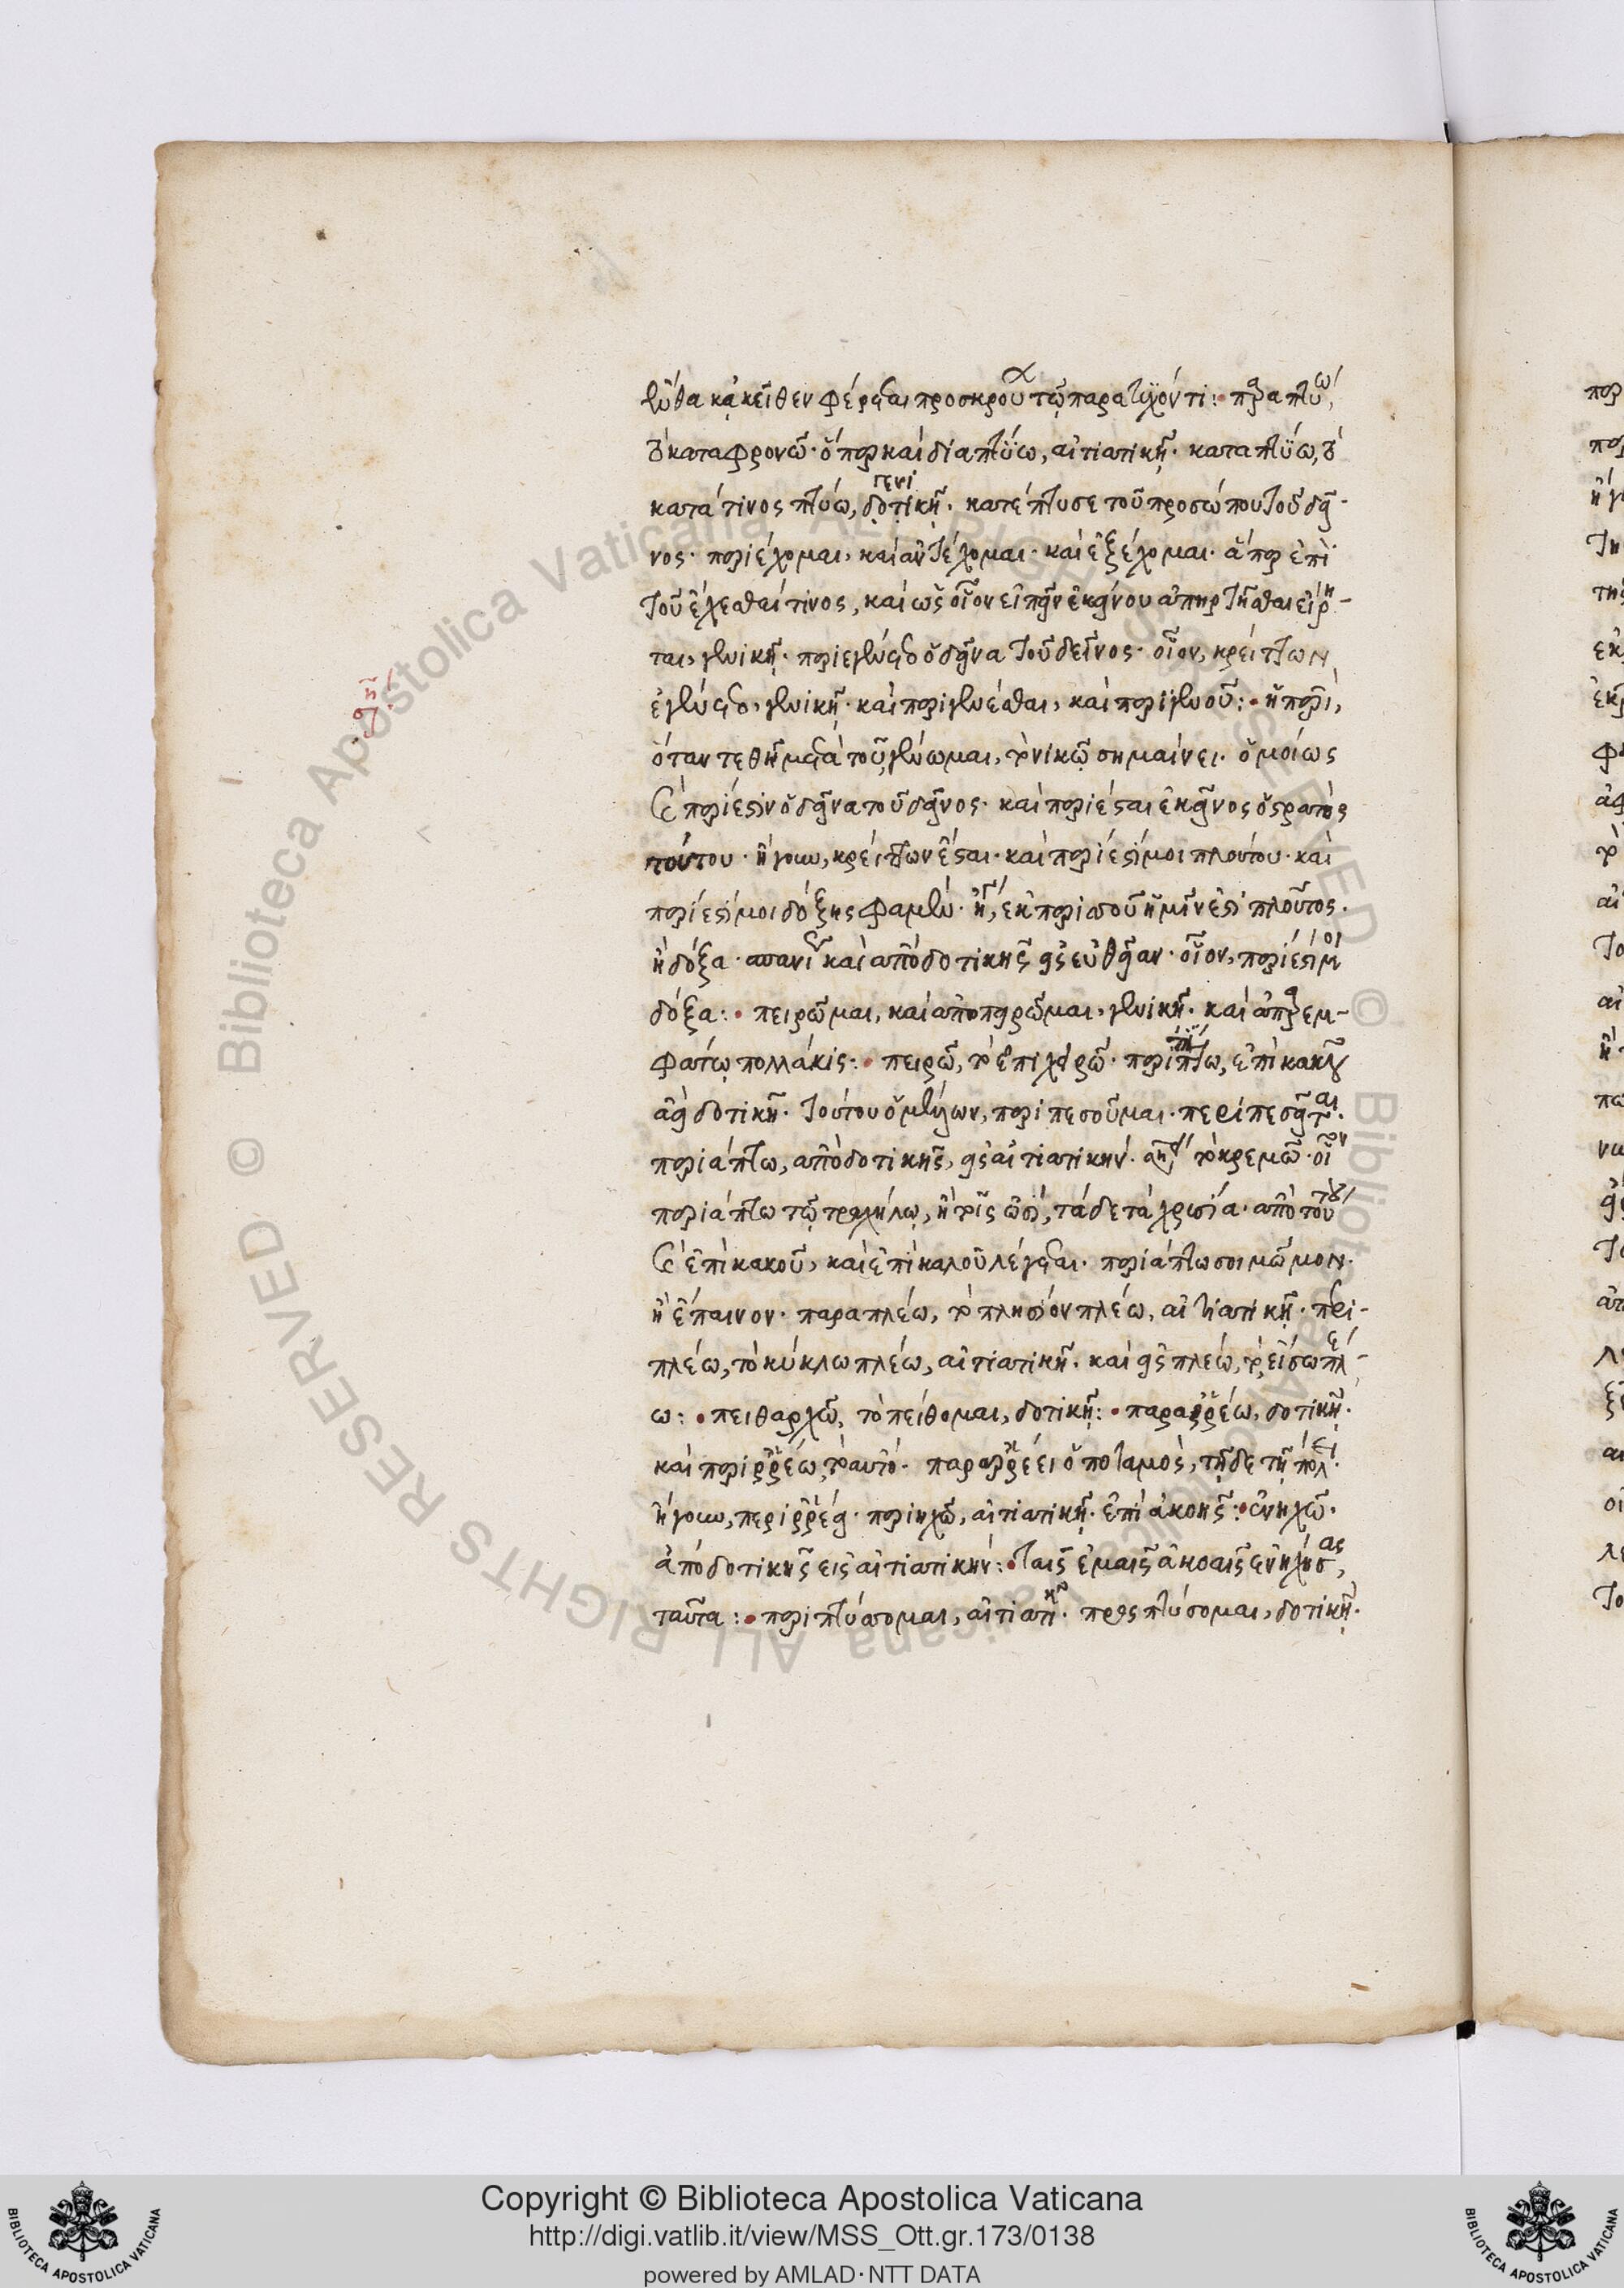 κἀκεῖθεν φέρεται προσκρού τῷ παρατυχόντι:
καταφρονῶ· ὅπερ καὶ διαπτύω, αἰτιατικῇ· καταπτύω,
κατά τινος πτύω, δοτικῇ· κατέπτυσε τοῦ προσώπου τοῦ δεῖ-
γενι
νος· περιέχομαι, καὶ ἀντέχομαι· καὶ ἐξέχομαι· ἅπερ ἐπὶ
τοῦ ἔχεσθαί τινος, καὶ ὡς οἷον εἰπεῖν ἐκείνου ἀπηρτῆσθαι εἴρη-
ται, γενικῇ· περιεγένετο ὁ δεῖνα τοῦ δεῖνος· οἷον, κρείττων
ἐγένετο, γενικῇ· καὶ περιγενέσθαι, καὶ περιγενοῦ: ἡ περὶ,
ὅταν τεθῇ μετὰ τοῦ γένωμαι, τὸ νικῶ σημαίνει· ὁμοίως
περίεστιν ὁ δεῖνα τοῦ δεῖνος· καὶ περιέσται ἐκεῖνος ὁ στρατὸς
τούτου· ἤγουν, κρείττων ἔσται· καὶ περίεστί μοι πλούτου· καὶ
περίεστί μοι δόξης φαμὲν· ἐκ περισσοῦ ἡμῖν ἐστὶ πλοῦτος·
ἢ δόξα· καὶ ἀπὸ δοτικῆς εἰς εὐθεῖαν· οἷον, περίεστί μοι
δόξα: πειρῶμαι, καὶ ἀποπειρῶμαι, γενικῇ· καὶ ἀπαρεμ-
φάτῳ πολλάκις: πειρῶ, τὸ ἐπιχειρῶ· περιπίπτω, ἐπὶ κακοῦ
ἀεὶ δοτικῇ· τούτου ὁ μέλλων, περιπεσοῦμαι· περιπεσεῖται·
περιάπτω, ἀπὸ δοτικῆς, εἰς αἰτιατικήν· τὸ κρεμῶ· οἷον
περιάπτω τῷ τραχήλῳ, ἢ τοῖς ὠσί, τάδε τὰ χρυσία· ἀπὸ τούτου
ἐπὶ κακοῦ, καὶ ἐπὶ καλοῦ λέγεται· περιάπτω σοι μῶμον·
ἢ ἔπαινον· παραπλέω, τὸ πλησίον πλέω, αἰτιατικῇ· περι-
πλέω, τὸ κύκλω πλέω, αἰτιατικῇ· καὶ εἰσπλέω, τὸ εἴσω πλέ-
ω: πειθαρχῶ, τὸ πείθομαι, δοτικῇ: παραρρέω, δοτικῇ·
καὶ περιρρέω, τὸ αὐτό· παραρρέει ὁ ποταμὸς, τῇδε τῇ πόλει·
ἤγουν, περιρρέει· περιηχῶ, αἰτιατικῇ· ἐπὶ ἀκοῆς: ἐνηχῶ·
ἀπὸ δοτικῆς εἰς αἰτιατικήν: ταῖς ἐμαῖς ἀκοαῖς ἐνήχησας,
ταῦτα: περιπτύσσομαι, αἰτιατικῇ· προσπτύσομαι, δοτικῇ·
Copyright © Biblioteca Apostolica Vaticana
http://digi.vatlib.it/view/MSS_Ott.gr.173/0138
powered by AMLAD·NTT DATA
BIBLIOTECA APOSTOLICA VATICANA
BIBLIOTECA APOSTOLICA VATICANA